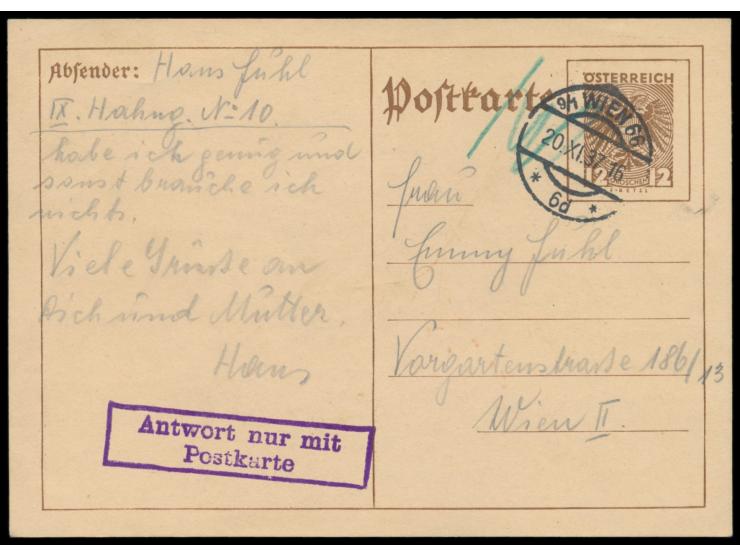 Absender: Hans Fühl
IX. Hahng. No 10.
habe ich genug und
sonst brauche ich
nichts.
Viele Grüsse an
Dich und Mutter.
Hans
Antwort nur mit
Postkarte
Postkarte
ÖSTERREICH
12 GROSCHEN 12
9/1 WIEN 66
20.XI.37.16
* 6d *
Frau
Emmy Fühl
Vorgartenstrasse 186/13
Wien II.